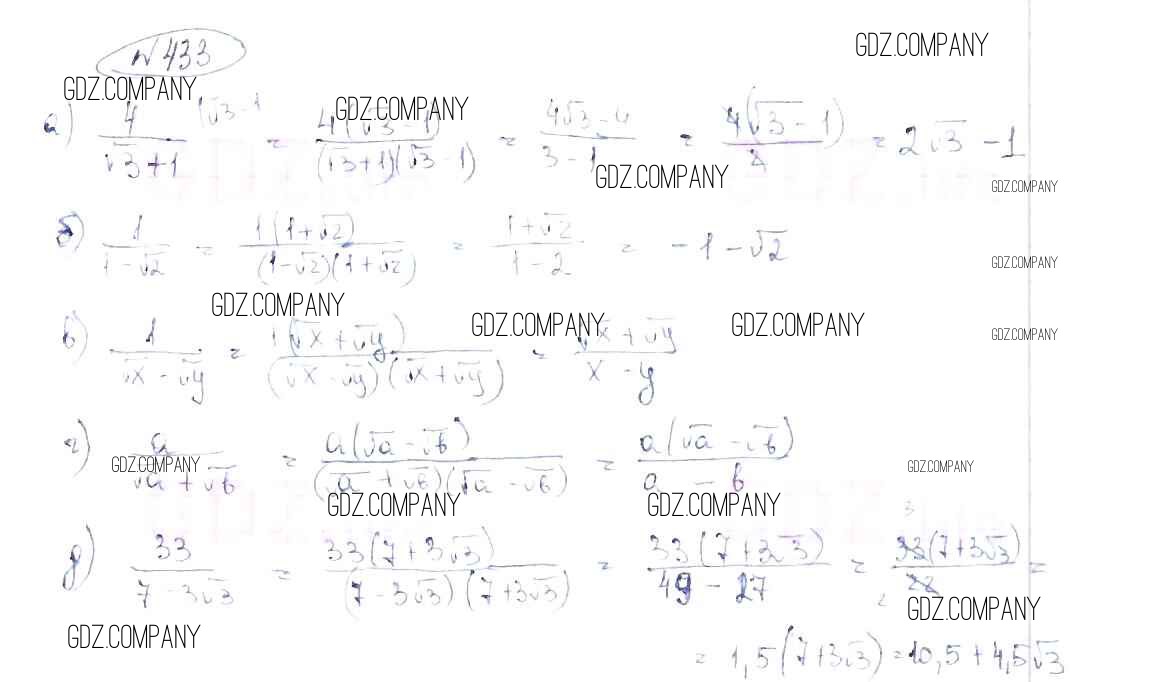 №433
GDZ.COMPANY
GDZ.COMPANY
GDZ.COMPANY
а) 4/(√3+1) (√3-1 = 4(√3-1)/((√3+1)(√3-1)) = (4√3-4)/(3-1) = 4(√3-1)/2 = 2√3-1
GDZ.COMPANY
GDZ.COMPANY
б) 1/(1-√2) = 1(1+√2)/((1-√2)(1+√2)) = (1+√2)/(1-2) = -1-√2
GDZ.COMPANY
GDZ.COMPANY
GDZ.COMPANY
GDZ.COMPANY
GDZ.COMPANY
в) 1/(√x-√y) = 1(√x+√y)/((√x-√y)(√x+√y)) = (√x+√y)/(x-y)
г) a/(√a+√b) = a(√a-√b)/((√a+√b)(√a-√b)) = a(√a-√b)/(a-b)
GDZ.COMPANY
GDZ.COMPANY
GDZ.COMPANY
GDZ.COMPANY
д) 33/(7-3√3) = 33(7+3√3)/((7-3√3)(7+3√3)) = 33(7+3√3)/(49-27) = 33(7+3√3)/22 =
3
2
GDZ.COMPANY
GDZ.COMPANY
= 1,5(7+3√3) = 10,5+4,5√3